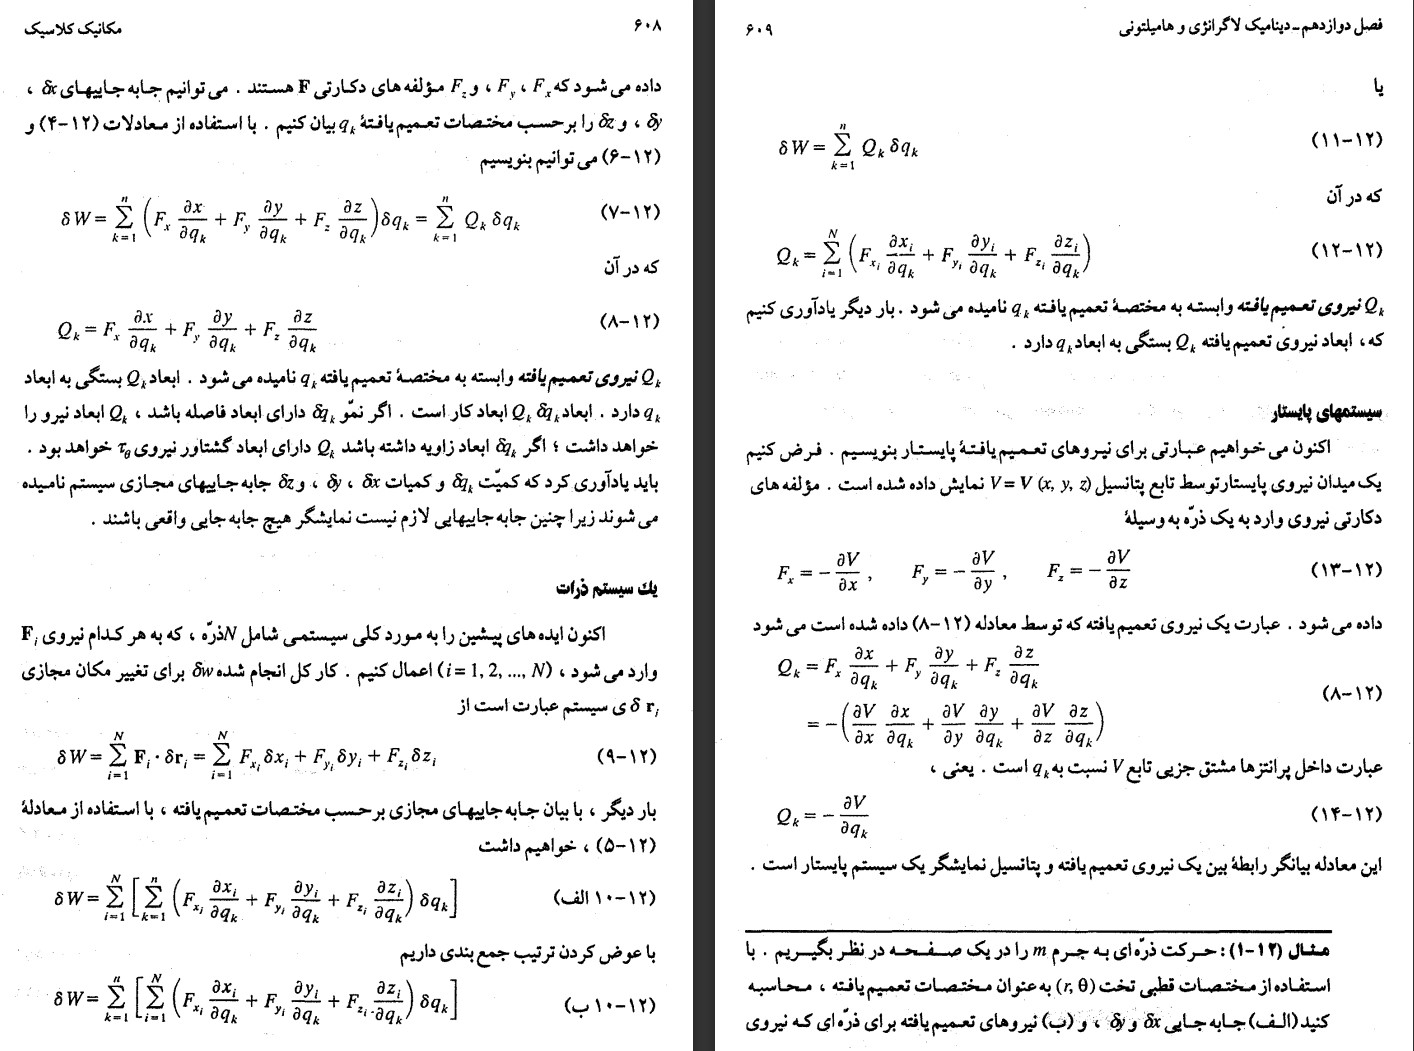 مکانیک کلاسیک ۶۰۸
داده می شود که F_x ، F_y ، و F_z مؤلفه های دکارتی F هستند . می توانیم جابه جاییهای δx ،
δy ، و δz را برحسب مختصات تعمیم یافتهٔ q_k بیان کنیم . با استفاده از معادلات (۴-۱۲) و
(۶-۱۲) می توانیم بنویسیم
δW = Σ_{k=1}^{n} (F_x ∂x/∂q_k + F_y ∂y/∂q_k + F_z ∂z/∂q_k) δq_k = Σ_{k=1}^{n} Q_k δq_k (۷-۱۲)
که در آن
Q_k = F_x ∂x/∂q_k + F_y ∂y/∂q_k + F_z ∂z/∂q_k (۸-۱۲)
Q_k نیروی تعمیم یافته وابسته به مختصهٔ تعمیم یافته q_k نامیده می شود . ابعاد Q_k بستگی به ابعاد
q_k دارد . ابعاد Q_k δq_k ابعاد کار است . اگر نمّو δq_k دارای ابعاد فاصله باشد ، Q_k ابعاد نیرو را
خواهد داشت ؛ اگر δq_k ابعاد زاویه داشته باشد Q_k دارای ابعاد گشتاور نیروی τ_θ خواهد بود .
باید یادآوری کرد که کمیّت δq_k و کمیات δx ، δy ، و δz جابه جاییهای مجازی سیستم نامیده
می شوند زیرا چنین جابه جاییهایی لازم نیست نمایشگر هیچ جابه جایی واقعی باشند .
یك سیستم ذرات
اکنون ایده های پیشین را به مورد کلی سیستمی شامل N ذرّه ، که به هر کدام نیروی F_i
وارد می شود ، (i = 1, 2, ..., N) اعمال کنیم . کار کل انجام شده δw برای تغییر مکان مجازی
δ r_i ی سیستم عبارت است از
δW = Σ_{i=1}^{N} F_i · δr_i = Σ_{i=1}^{N} F_{x_i} δx_i + F_{y_i} δy_i + F_{z_i} δz_i (۹-۱۲)
بار دیگر ، با بیان جابه جاییهای مجازی برحسب مختصات تعمیم یافته ، با استفاده از معادلهٔ
(۵-۱۲) ، خواهیم داشت
δW = Σ_{i=1}^{N} [Σ_{k=1}^{n} (F_{x_i} ∂x_i/∂q_k + F_{y_i} ∂y_i/∂q_k + F_{z_i} ∂z_i/∂q_k) δq_k] (۱۰-۱۲ الف)
با عوض کردن ترتیب جمع بندی داریم
δW = Σ_{k=1}^{n} [Σ_{i=1}^{N} (F_{x_i} ∂x_i/∂q_k + F_{y_i} ∂y_i/∂q_k + F_{z_i} ∂z_i/∂q_k) δq_k] (۱۰-۱۲ ب)
فصل دوازدهم ـ دینامیک لاگرانژی و هامیلتونی ۶۰۹
یا
δW = Σ_{k=1}^{n} Q_k δq_k (۱۱-۱۲)
که در آن
Q_k = Σ_{i=1}^{N} (F_{x_i} ∂x_i/∂q_k + F_{y_i} ∂y_i/∂q_k + F_{z_i} ∂z_i/∂q_k) (۱۲-۱۲)
Q_k نیروی تعمیم یافته وابسته به مختصهٔ تعمیم یافته q_k نامیده می شود . بار دیگر یادآوری کنیم
که ، ابعاد نیروی تعمیم یافته Q_k بستگی به ابعاد q_k دارد .
سیستمهای پایستار
اکنون می خواهیم عبارتی برای نیروهای تعمیم یافتهٔ پایستار بنویسیم . فرض کنیم
یک میدان نیروی پایستار توسط تابع پتانسیل V = V (x, y, z) نمایش داده شده است . مؤلفه های
دکارتی نیروی وارد به یک ذرّه به وسیلهٔ
F_x = − ∂V/∂x , F_y = − ∂V/∂y , F_z = − ∂V/∂z (۱۳-۱۲)
داده می شود . عبارت یک نیروی تعمیم یافته که توسط معادله (۸-۱۲) داده شده است می شود
Q_k = F_x ∂x/∂q_k + F_y ∂y/∂q_k + F_z ∂z/∂q_k
(۸-۱۲)
= −(∂V/∂x ∂x/∂q_k + ∂V/∂y ∂y/∂q_k + ∂V/∂z ∂z/∂q_k)
عبارت داخل پرانتزها مشتق جزیی تابع V نسبت به q_k است . یعنی ،
Q_k = − ∂V/∂q_k (۱۴-۱۲)
این معادله بیانگر رابطهٔ بین یک نیروی تعمیم یافته و پتانسیل نمایشگر یک سیستم پایستار است .
مثال (۱۲-۱) : حرکت ذرّه ای به جرم m را در یک صفحه در نظر بگیریم . با
استفاده از مختصات قطبی تخت (r, θ) به عنوان مختصات تعمیم یافته ، محاسبه
کنید (الف) جابه جایی δx و δy ، و (ب) نیروهای تعمیم یافته برای ذرّه ای که نیروی